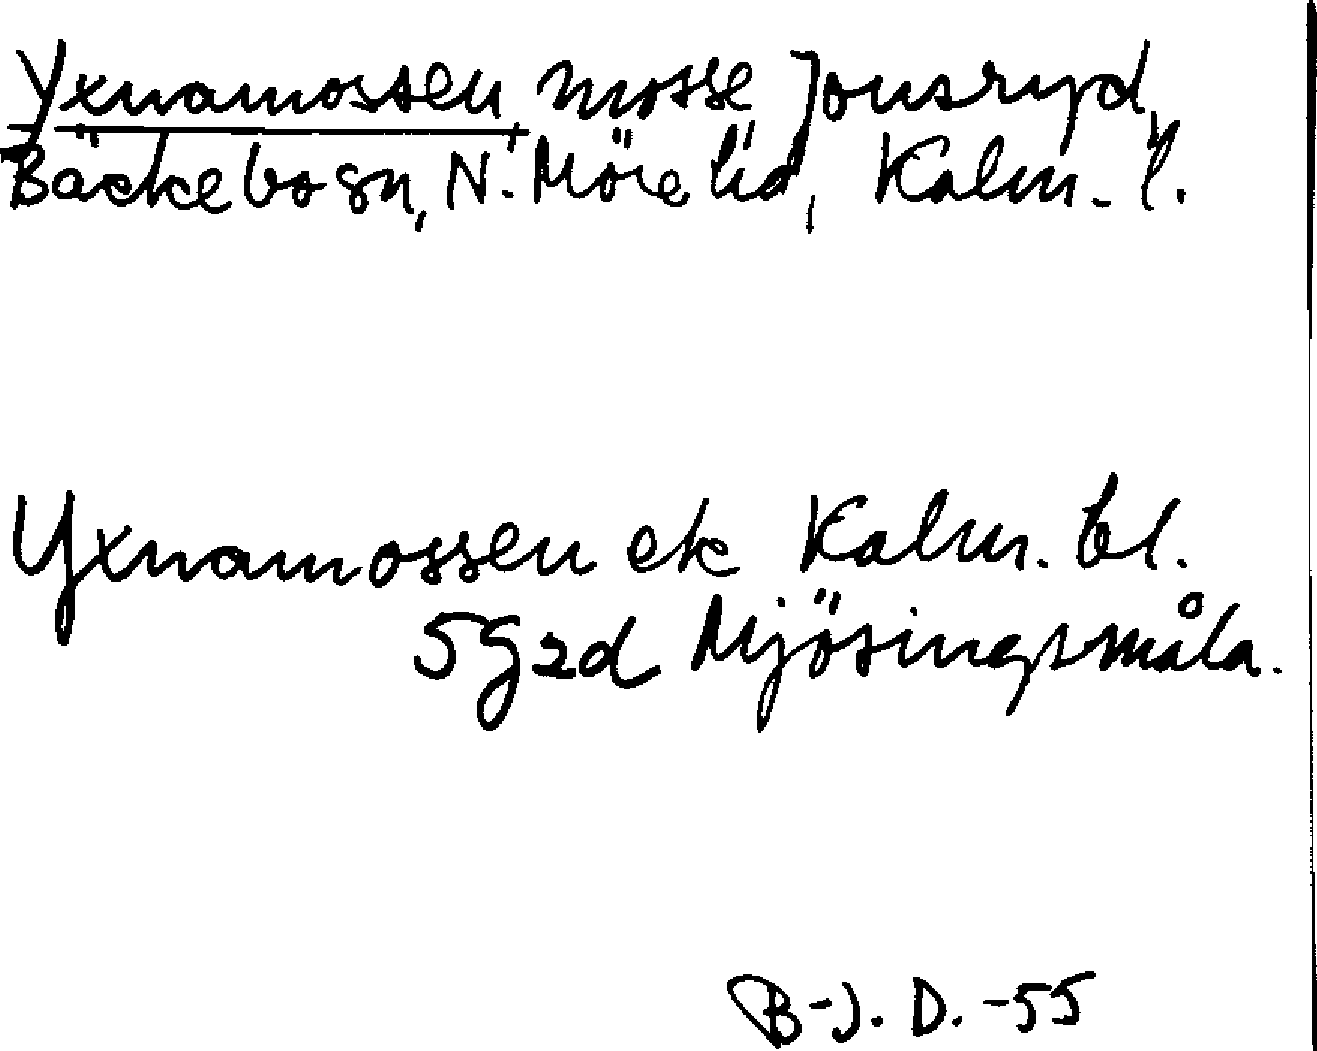 Yxnamossen mosse Jonsryd,
Bäckebo sn, N. Möre hd, Kalm. l.
Yxnamossen ek Kalm. bl.
5 g 2 d Mjösingsmåla.
B-J. D. -55